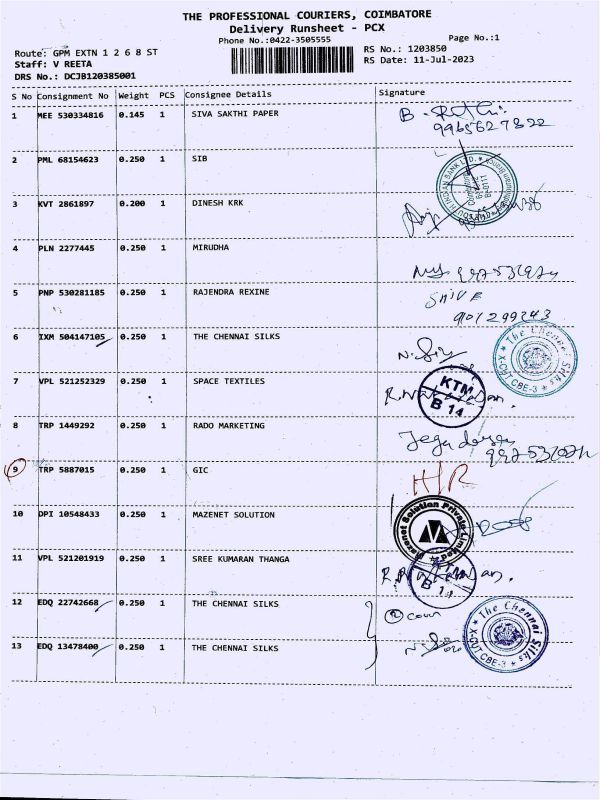 THE PROFESSIONAL COURIERS, COIMBATORE
Delivery Runsheet - PCX
Phone No.:0422-3505555
Page No.:1
Route: GPM EXTN 1 2 6 8 ST
RS No.: 1203850
Staff: V REETA
RS Date: 11-Jul-2023
DRS No.: DCJB120385001
S No Consignment No Weight PCS Consignee Details Signature
1 MEE 530334816 0.145 1 SIVA SAKTHI PAPER
2 PML 68154623 0.250 1 SIB
3 KVT 2861897 0.200 1 DINESH KRK
4 PLN 2277445 0.250 1 MIRUDHA
5 PNP 530281185 0.250 1 RAJENDRA REXINE
6 IXM 504147105 0.250 1 THE CHENNAI SILKS
The Chennai Silks
CBE-3
7 VPL 521252329 0.250 1 SPACE TEXTILES
KTM
B 14
8 TRP 1449292 0.250 1 RADO MARKETING
9 TRP 5887015 0.250 1 GIC
HR
10 DPI 10548433 0.250 1 MAZENET SOLUTION
Mazenet Solution Private Limited
11 VPL 521201919 0.250 1 SREE KUMARAN THANGA
12 EDQ 22742668 0.250 1 THE CHENNAI SILKS
The Chennai Silks
CBE-3
13 EDQ 13478400 0.250 1 THE CHENNAI SILKS